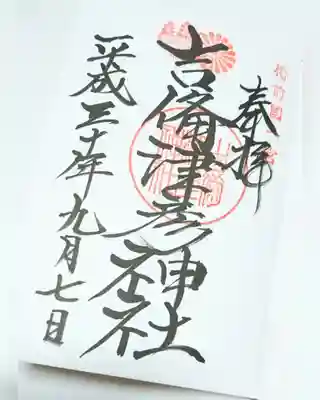 奉拝
吉備津彦神社
平成三十年九月七日